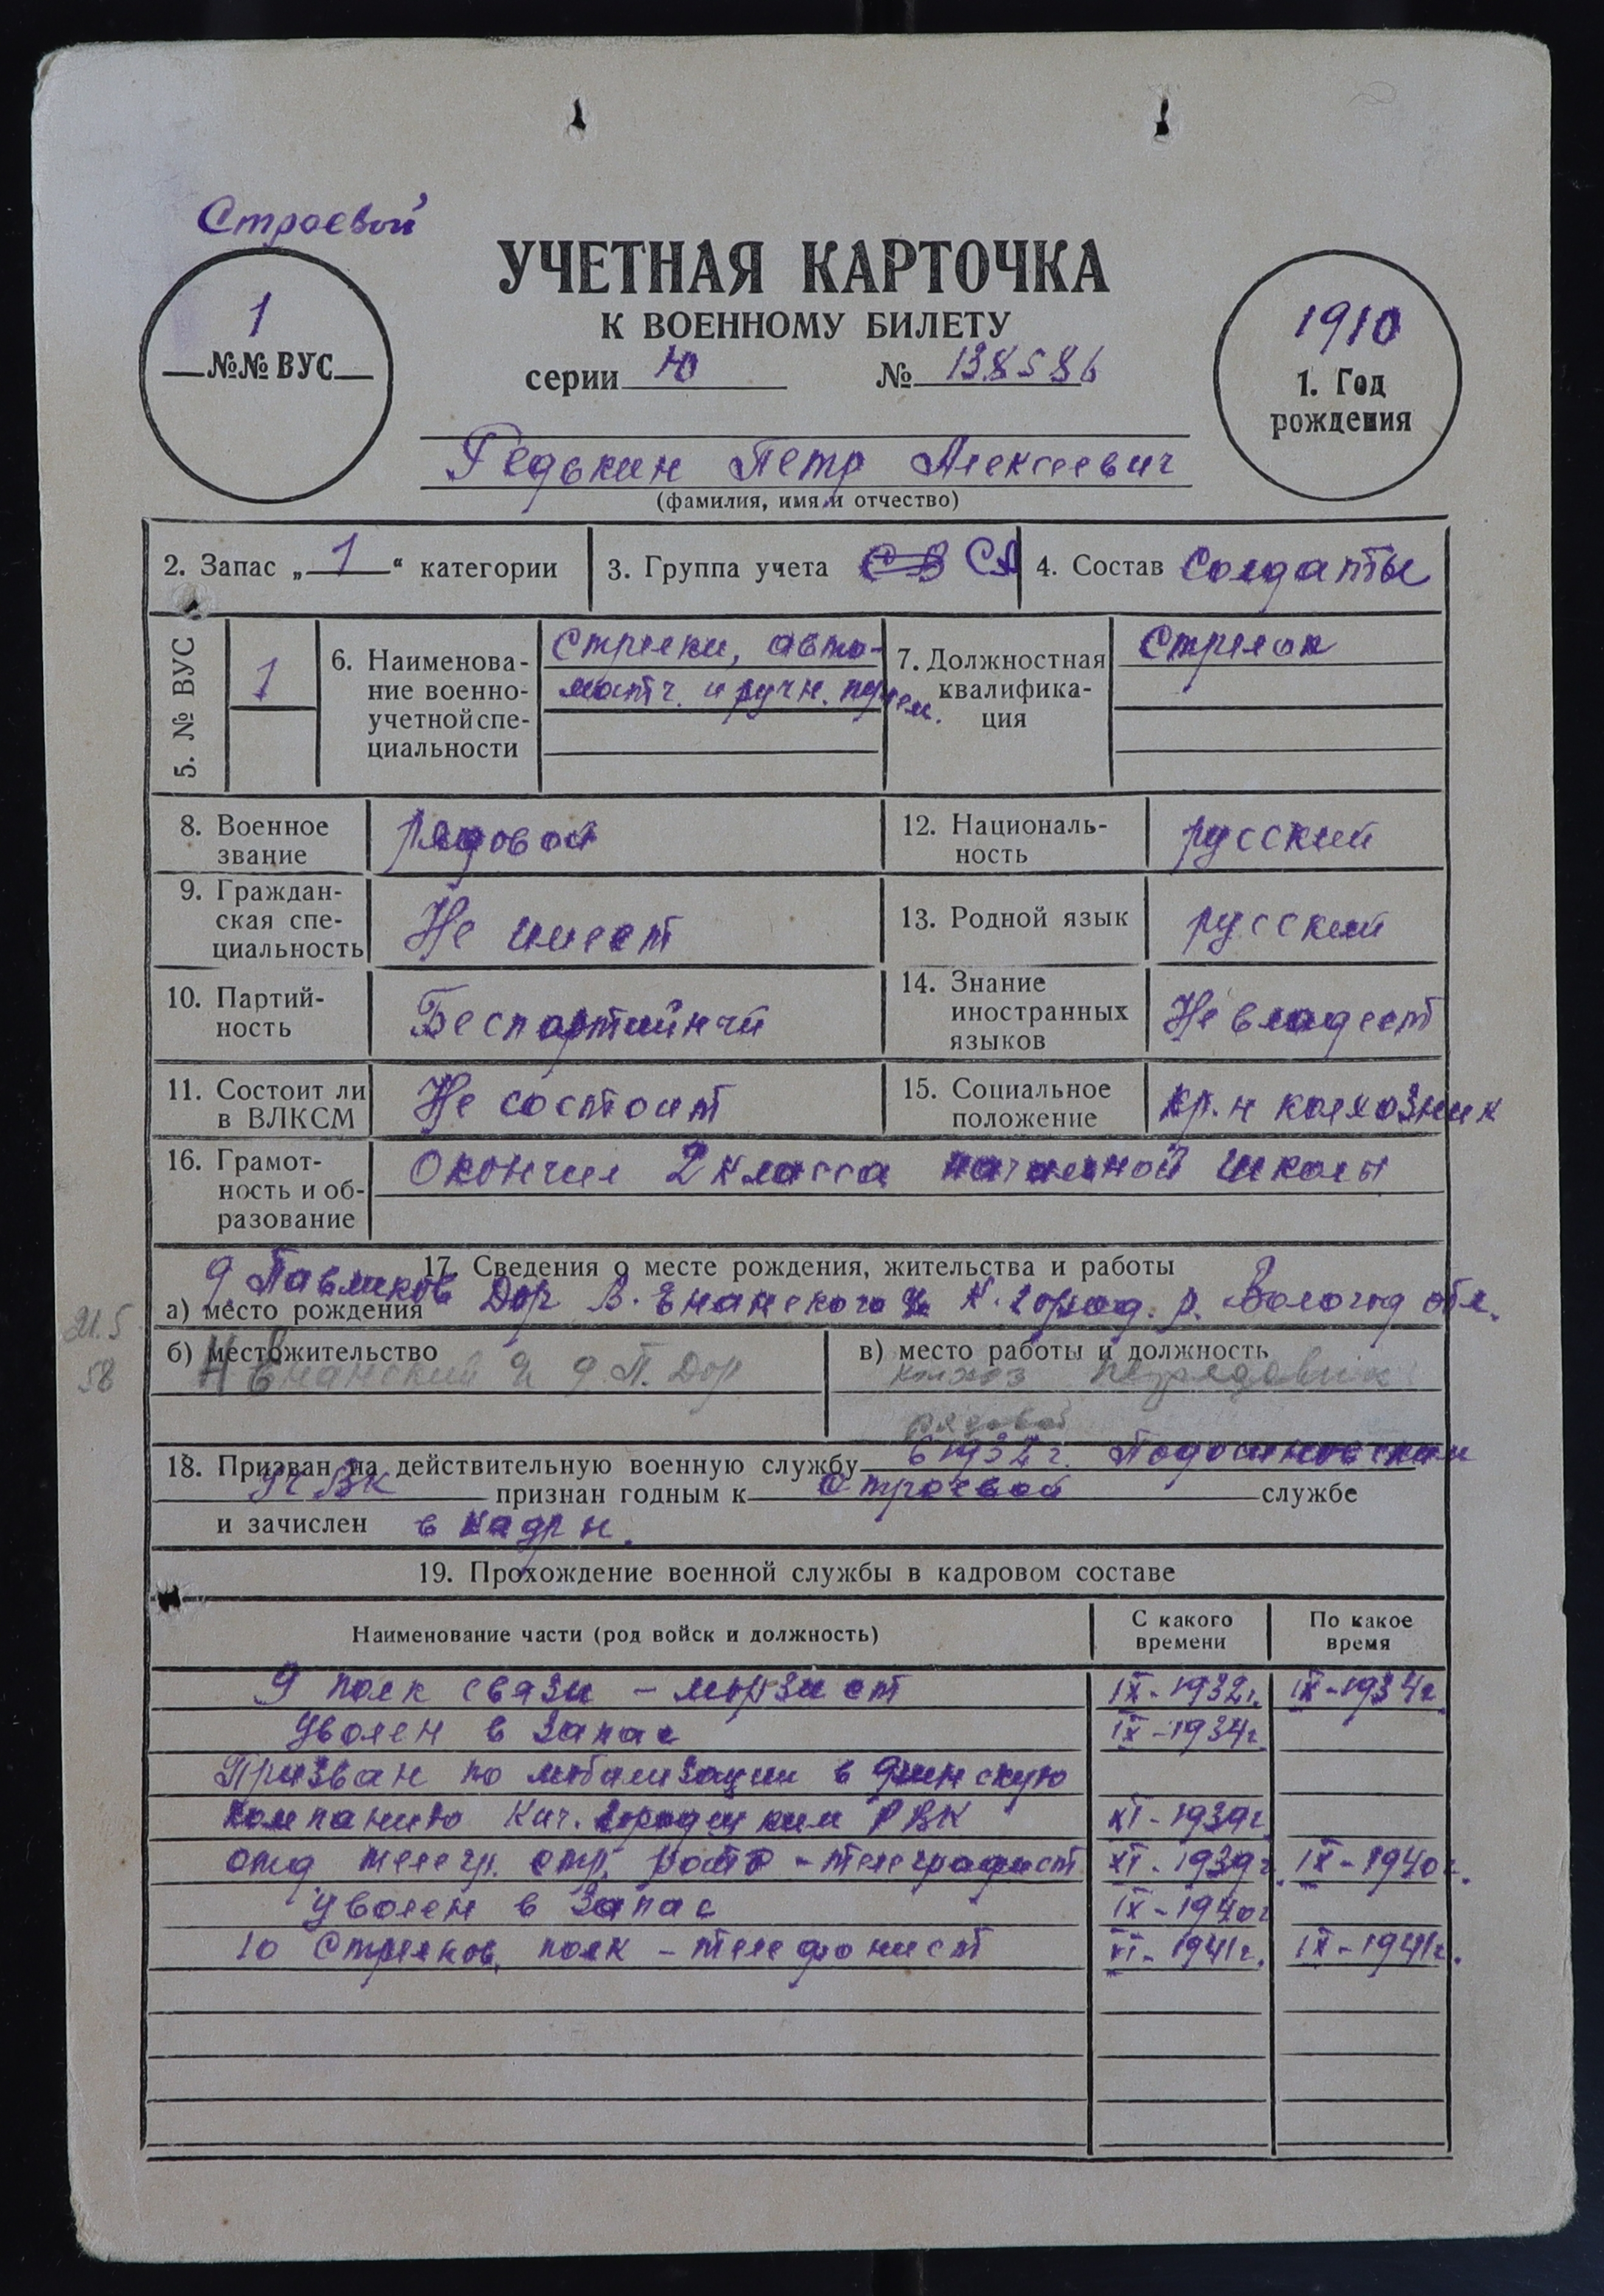 Строевой
УЧЕТНАЯ КАРТОЧКА
К ВОЕННОМУ БИЛЕТУ
серии Ю № 138586
1
№№ ВУС
1910
1. Год
рождения
Редькин Петр Алексеевич
(фамилия, имя и отчество)
2. Запас „ 1 “ категории
3. Группа учета СВ СА
4. Состав Солдаты
5. № ВУС
1
6. Наименова-
ние военно-
учетной спе-
циальности
Стрелки, авто-
матч. и ручн. пулем.
7. Должностная
квалифика-
ция
Стрелок
8. Военное
звание
рядовой
12. Националь-
ность
русский
9. Граждан-
ская спе-
циальность
Не имеет
13. Родной язык
русский
10. Партий-
ность
Беспартийнчй
14. Знание
иностранных
языков
Не владеет
11. Состоит ли
в ВЛКСМ
Не состоит
15. Социальное
положение
кр. н колхозник
16. Грамот-
ность и об-
разование
Окончил 2 класса начальной школы
17. Сведения о месте рождения, жительства и работы
а) место рождения д. Павликов Дор В. Енанского К. Город. р. Вологод обл.
21.5
58
б) местожительство
Енанский д. П. Дор
в) место работы и должность
колхоз
рядовой
18. Призван на действительную военную службу в 1932 г. Подосиновским
РВК признан годным к строевой службе
и зачислен в кадры.
19. Прохождение военной службы в кадровом составе
Наименование части (род войск и должность)
С какого
времени
По какое
время
9 полк связи – морзист IX - 1932г. IX - 1934г
Уволен в запас IX - 1934г.
Призван по мобилизации в финскую
компанию Кич. Городецким РВК XI - 1939г.
отд. телегр. стр. рота - телеграфист XI - 1939г. IX - 1940г.
Уволен в запас IX - 1940г
10 Стрелков. полк - телефонист VI - 1941г. IX - 1941г.